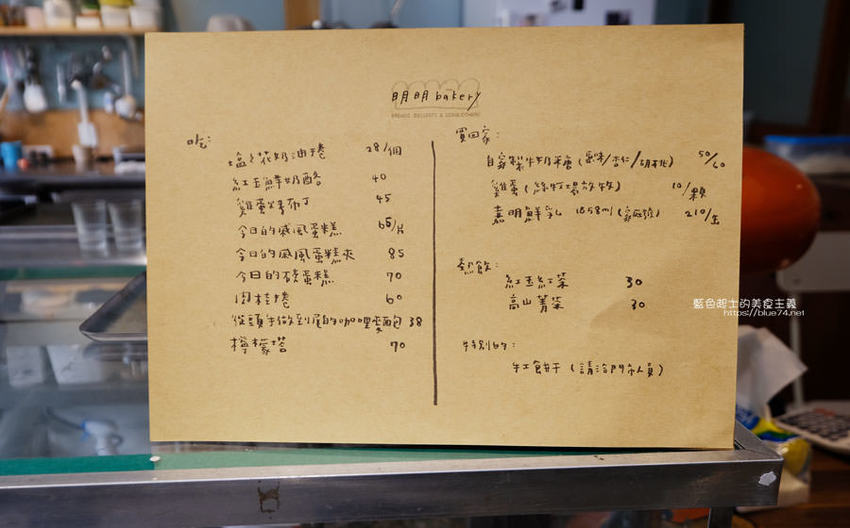 明明 bakery
BREADS DESSERTS &
吃：
塩之花奶油捲 28/個
紅玉鮮奶酪 40
雞蛋烤布丁 45
今日的戚風蛋糕 65/片
今日的戚風蛋糕夾 85
今日的磅蛋糕 70
肉桂捲 60
從頭手做到尾的咖哩麵包 38
檸檬塔 70
買回家：
自家製牛奶糖（原味/杏仁/胡桃） 50/60
雞蛋（牧場放牧） 10/顆
嘉明鮮乳 1858ml（家庭號） 210/缶
熱飲：
紅玉紅茶 30
高山菁茶 30
特別的：
紅餅干（請洽門市人員）
藍色起士的美食主義
https://blue74.net